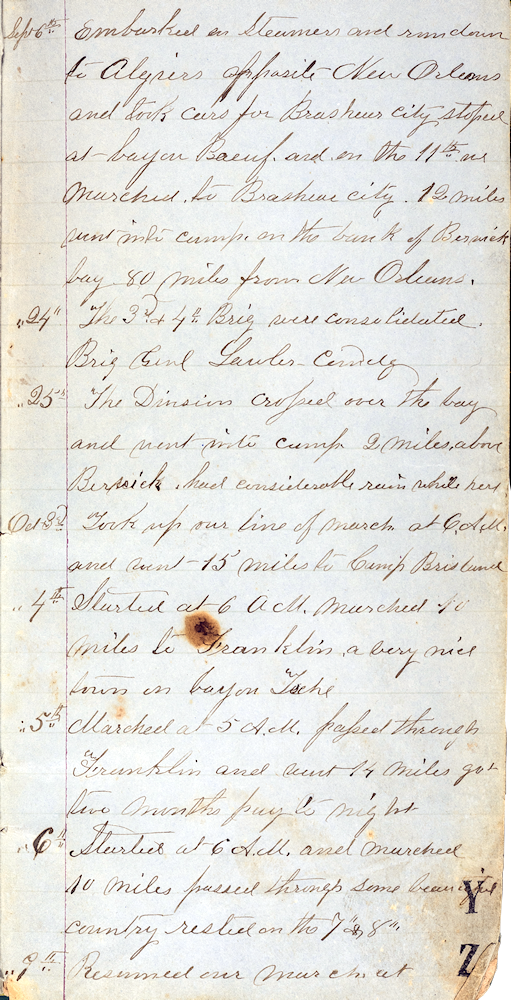 Sept 6th Embarked on Steamers and run down
to Algiers opposite New Orleans
and took cars for Brashear city stoped
at bayou Boeuf. and on the 11th we
marched. to Brashear city. 12 miles
went into camp. on the bank of Berwick
bay 80 miles from New Orleans.
"24" The 3d & 4th Brig were consolidated.
Brig Genl Lawler Comdg
"25th The Division crossed over the bay
and went into camp 2 miles above
Berwick. had considerable rain while here
Oct 3d Took up our line of march at 6 A.M.
and went 15 miles to Camp Bisland
"4th Started at 6 A.M. marched 10
miles to Franklin, a very nice
town on bayou Teche
"5th Marched at 5 A.M. passed through
Franklin and went 14 miles got
two months pay to night
"6th Started at 6 A.M. and marched
10 miles passed through some beautiful
country rested on the 7" & 8".
"9th Resumed our march at
Y
Z